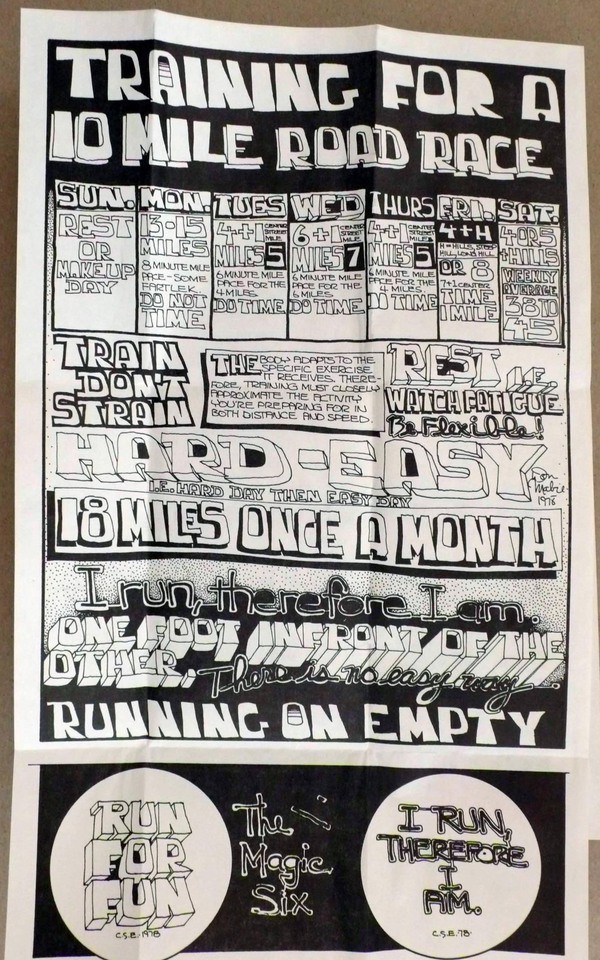 TRAINING FOR A
10 MILE ROAD RACE
SUN.
REST
OR
MAKEUP
DAY
MON.
13-15
MILES
8 MINUTE MILE
PACE - SOME
FARTLEK.
DO NOT
TIME
TUES
4+1 CENTER STREET MILE
MILES 5
6 MINUTE MILE
PACE FOR THE
4 MILES.
DO TIME
WED
6+1 CENTER STREET MILE
MILES 7
6 MINUTE MILE
PACE FOR THE
6 MILES.
DO TIME
THURS
4+1 CENTER STREET MILE
MILES 5
6 MINUTE MILE
PACE FOR THE
4 MILES.
DO TIME
FRI.
4+H
H=HILLS, STEEP
HILL, LONG HILL
OR 8
7+1 CENTER
TIME
1 MILE
SAT.
4 OR 5
+HILLS
WEEKLY
AVERAGE
38 TO
45
TRAIN
DON'T
STRAIN
THE BODY ADAPTS TO THE
SPECIFIC EXERCISE
IT RECEIVES. THERE-
FORE, TRAINING MUST CLOSELY
APPROXIMATE THE ACTIVITY
YOU'RE PREPARING FOR IN
BOTH DISTANCE AND SPEED.
REST I.E.
WATCH FATIGUE
Be Flexible!
HARD-EASY
I.E. HARD DAY THEN EASY DAY
1978
18 MILES ONCE A MONTH
I run, therefore I am.
ONE FOOT INFRONT OF THE
OTHER. There is no easy way.
RUNNING ON EMPTY
RUN
FOR
FUN
C.S.E. 1978
The
Magic
Six
I RUN,
THEREFORE
I
AM.
C.S.E. 78